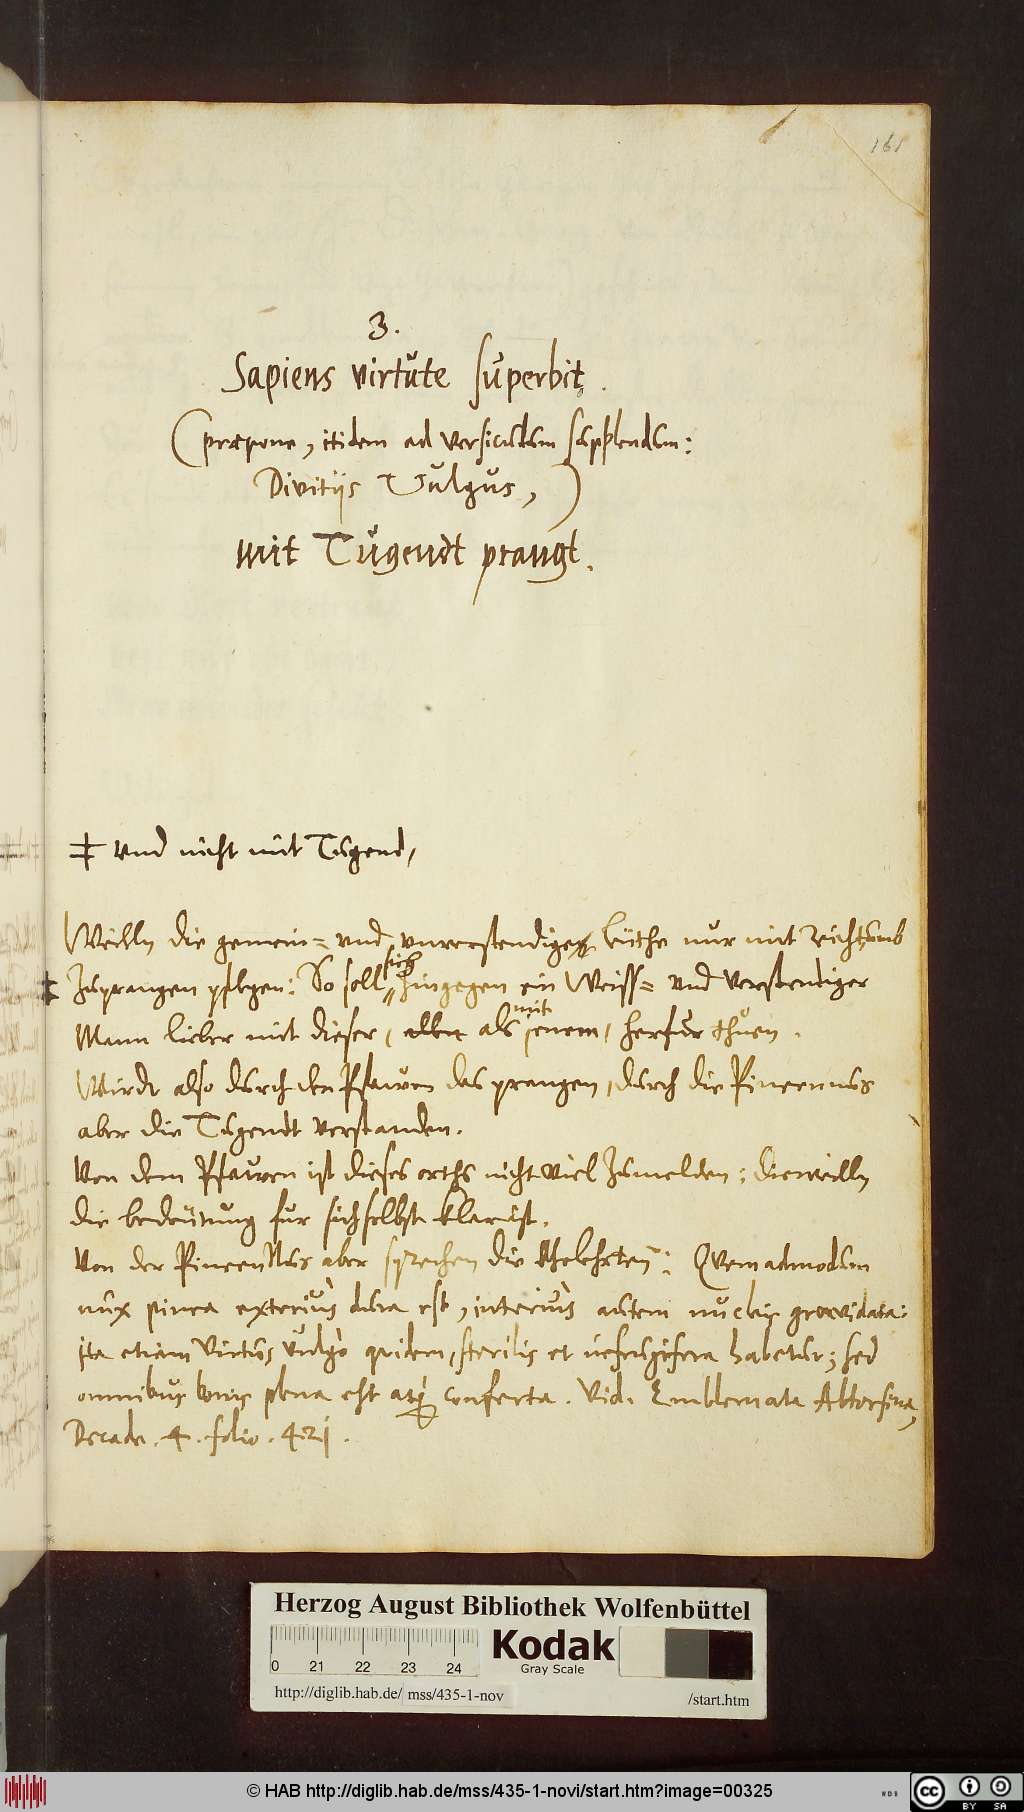 161
3.
Sapiens virtute superbit.
(præpone, itidem ad versiculum supplendum:
Divitijs Vulgus,)
mit Tugendt prangt.
‡ vnd nicht mit Tugend,
Weilln die gemein= vnd vnverstendige leüthe nur mit reichtumb
‡ zuprangen pflegen: So soll sich hingegen ein Weiss= vnd verstendiger
Mann lieber mit dieser, als mit jenem, herfür thuen.
Würdt also durch den Pfawen das prangen, durch die Pineennus
aber die Tugendt verstanden.
Von dem Pfawen ist dieses orths nicht viel zumelden: dieweilln
die bedeütnung für sich selbst klar ist.
Von der PineenNus aber sprechen die Gelehrten: Qvemadmodum
nux pinea exterius dura est, interius autem nucleis gravidata:
ita etiam Virtus vulgò quidem, sterilis et infrugifera habetur; sed
omnibus bonis plena est atq3 conferta. Vid. Emblemata Altorfina,
Decade. 4. folio. 421.
Herzog August Bibliothek Wolfenbüttel
0 21 22 23 24
Kodak
Gray Scale
http://diglib.hab.de/ mss/435-1-nov /start.htm
© HAB http://diglib.hab.de/mss/435-1-novi/start.htm?image=00325
WDB
CC BY SA